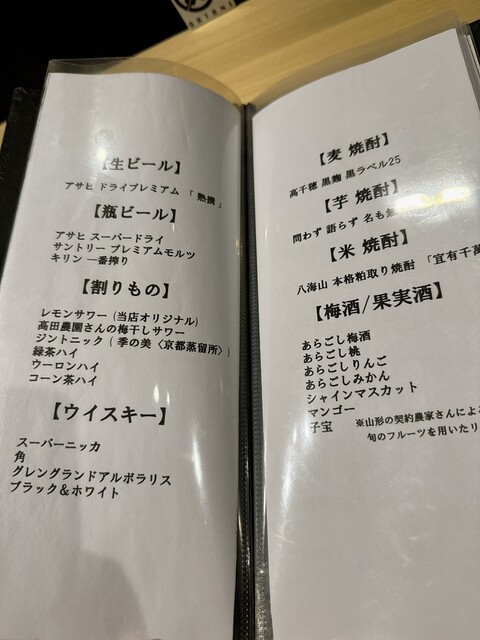 【生ビール】
アサヒ ドライプレミアム 「 熟撰 」
【瓶ビール】
アサヒ スーパードライ
サントリー プレミアムモルツ
キリン 一番搾り
【割りもの】
レモンサワー (当店オリジナル)
高田農園さんの梅干しサワー
ジントニック ( 季の美〈京都蒸留所〉)
緑茶ハイ
ウーロンハイ
コーン茶ハイ
【ウイスキー】
スーパーニッカ
角
グレングランドアルボラリス
ブラック＆ホワイト
【麦 焼酎】
高千穂 黒麹 黒ラベル25
【芋 焼酎】
問わず 語らず 名も
【米 焼酎】
八海山 本格粕取り焼酎 「宜有千萬
【梅酒/果実酒】
あらごし梅酒
あらごし桃
あらごしりんご
あらごしみかん
シャインマスカット
マンゴー
子宝
※山形の契約農家さんによる
旬のフルーツを用いたリ